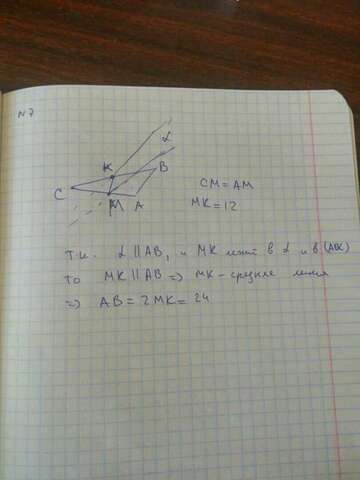 N7
α
K
B
C
M
A
CM = AM
MK = 12
т.к. α || AB, и MK лежит в α и в (ABC)
то MK || AB => MK - средняя линия
=> AB = 2MK = 24